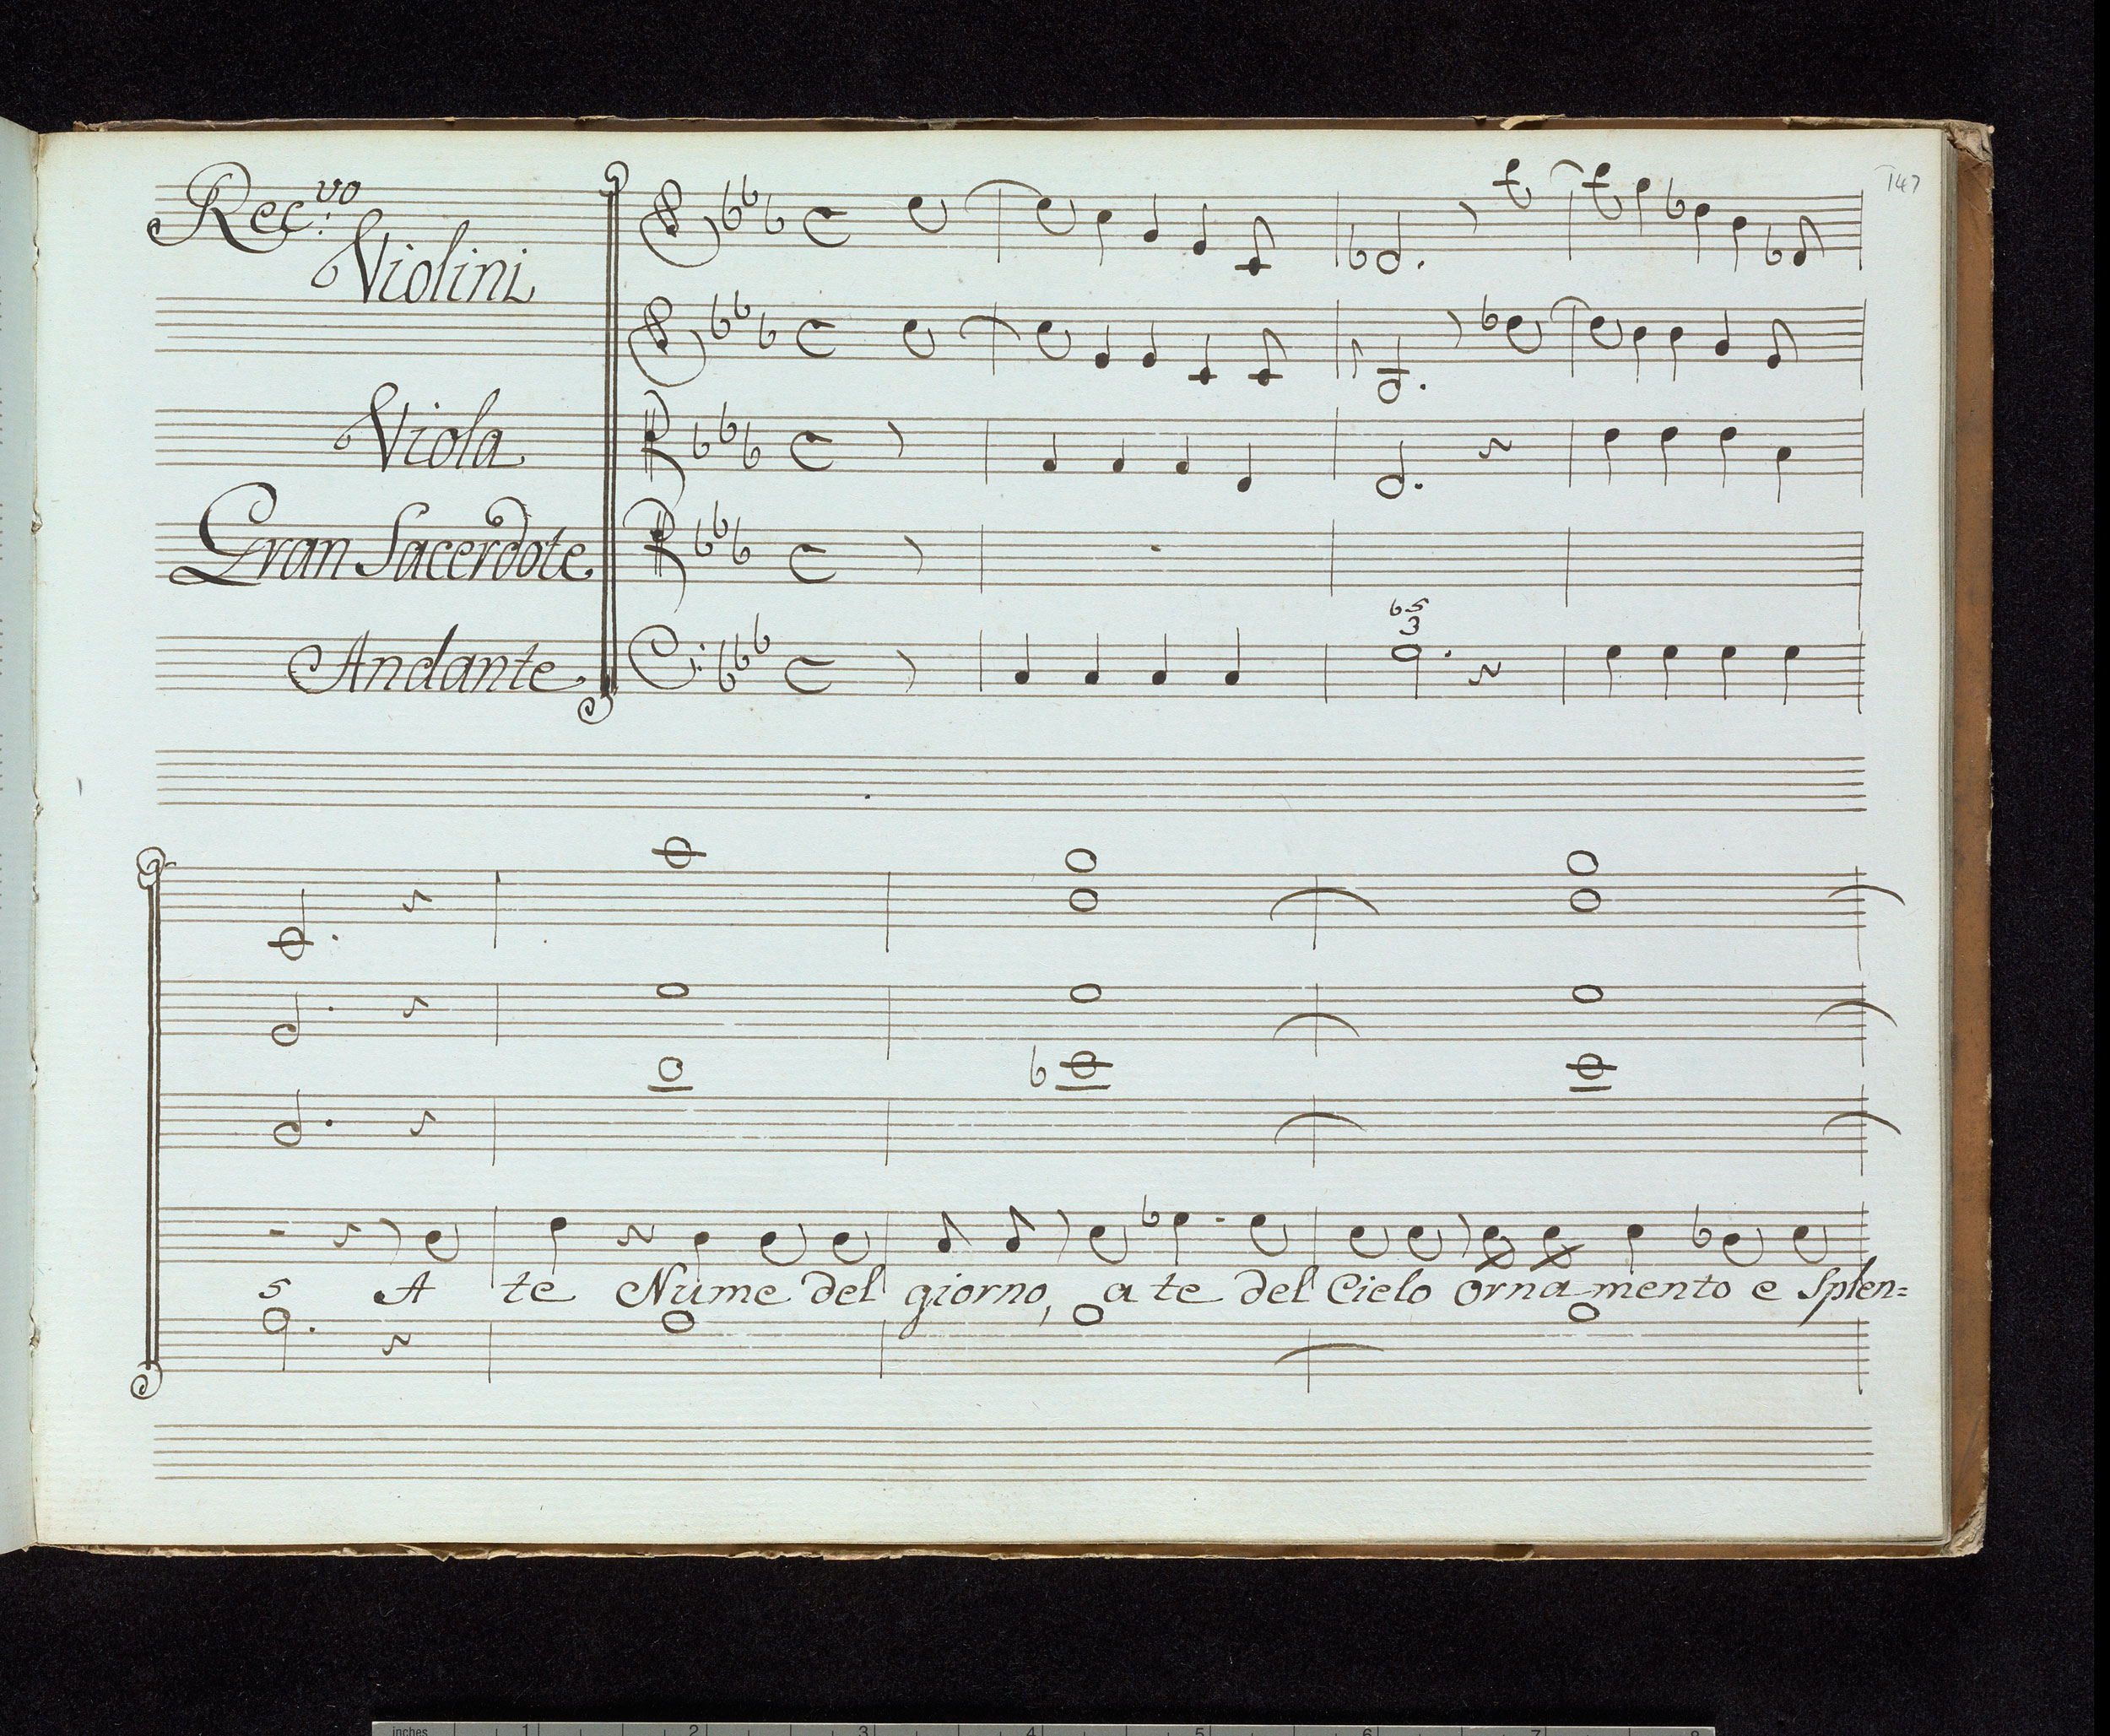 147
Rec.vo
Violini
Viola
Gran Sacerdote
Andante
b5
3
5
A te Nume del giorno, a te del Cielo ornamento e Splen=
inches 1 2 3 4 5 6 7 8